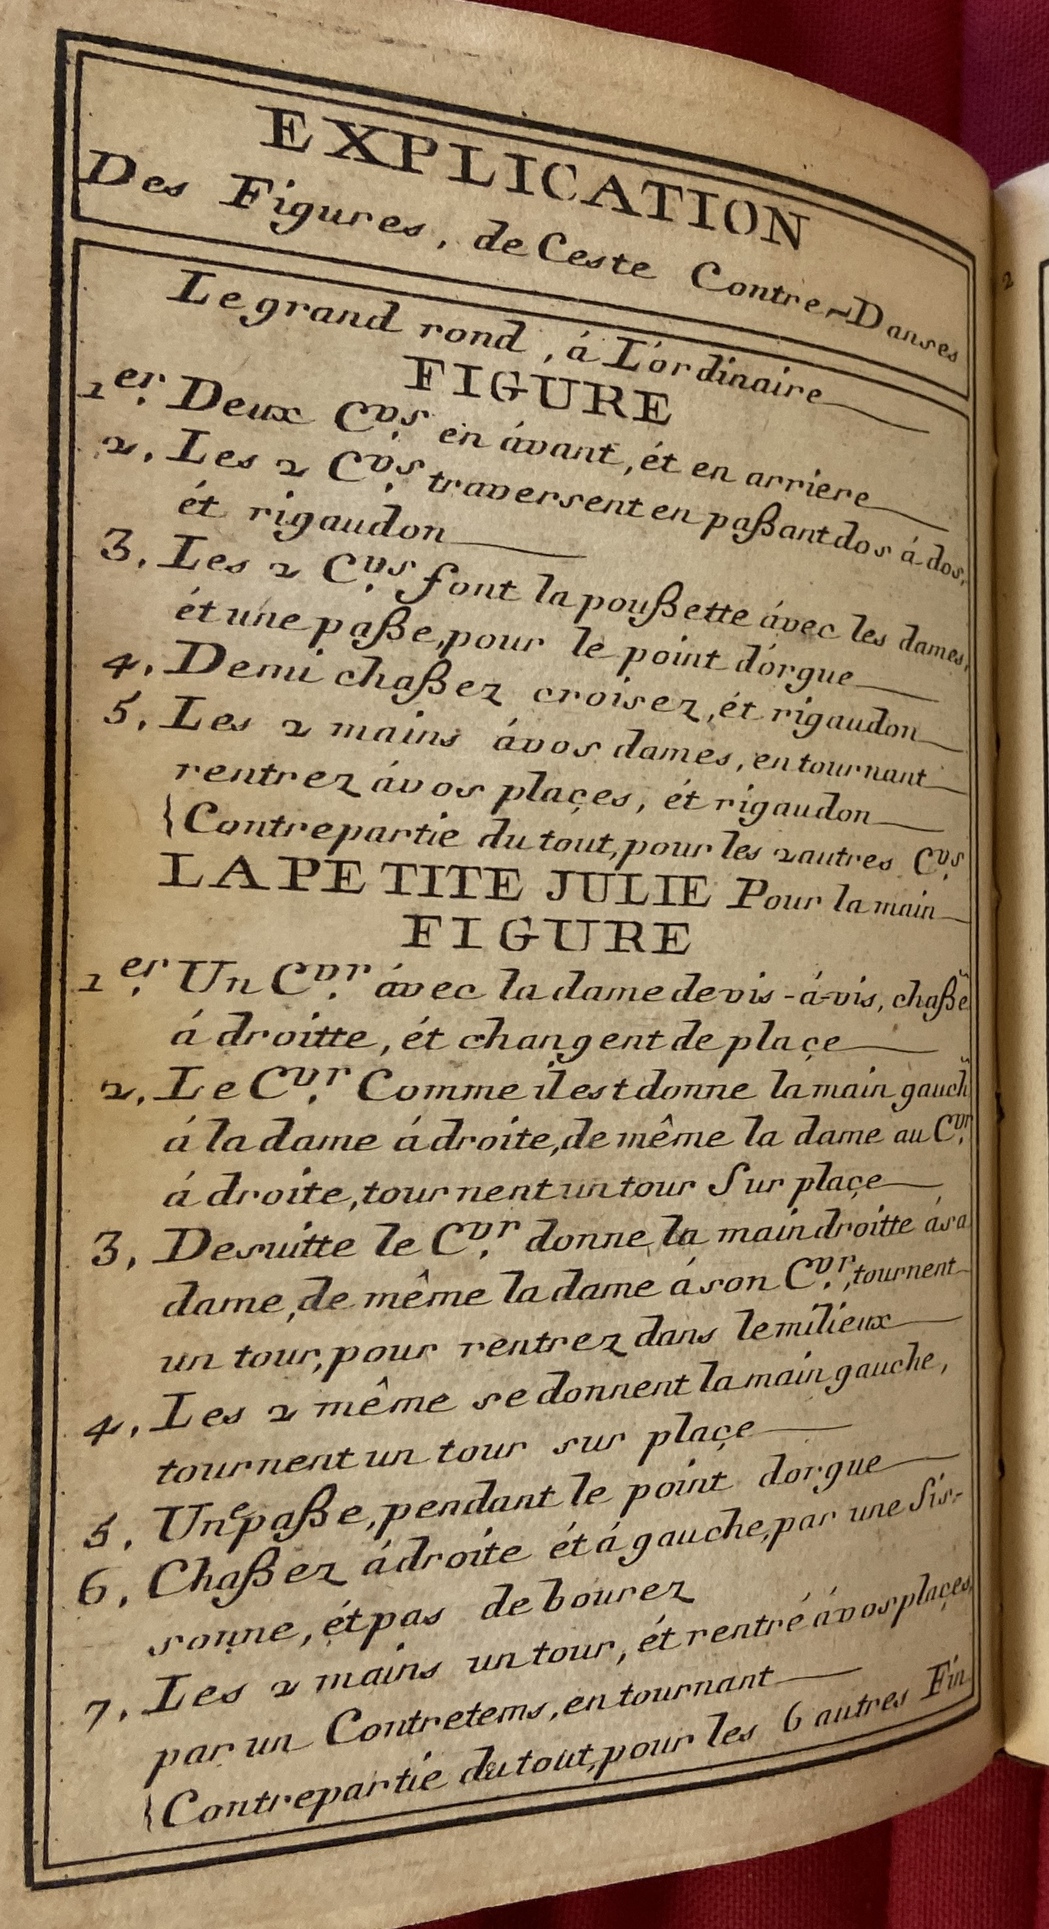 EXPLICATION
Des Figures, de Ceste Contre-Danses
Le grand rond, á L'ordinaire
FIGURE
1er. Deux Cvs. en ávant, ét en arriere
2. Les 2 Cvs. traversent en paßant dos á dos,
ét rigaudon
3. Les 2 Cvs. font la poußette ávec les dames,
ét une paße, pour le point d'orgue
4. Demi chaßez croisez, ét rigaudon
5. Les 2 mains ávos dames, en tournant
rentrez ávos plaçes, ét rigaudon
{Contrepartie du tout, pour les 2 autres Cvs.
LA PETITE JULIE Pour la main
FIGURE
1er. Un Cvr. ávec la dame de vis-á-vis, chaße
á droitte, ét changent de plaçe
2. Le Cvr. Comme il est donne la main gauch
á la dame á droite, de même la dame au Cvr.
á droite, tournent un tour Sur plaçe
3. Desuitte le Cvr. donne la main droitte ása
dame, de même la dame á son Cvr., tournent
un tour, pour rentrez dans le milieux
4. Les 2 même se donnent la main gauche,
tournent un tour sur plaçe
5. Une paße, pendant le point dorgue
6. Chaßez ádroite ét á gauche, par une Sis-
sonne, ét pas de bourez
7. Les 2 mains un tour, ét rentré ávos plaçes,
par un Contretems, en tournant
{Contrepartie du tout, pour les 6 autres Fin
2